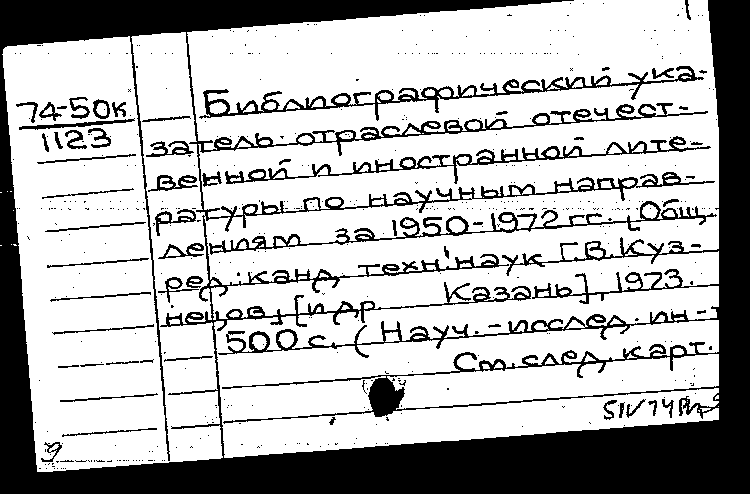 74-50к
1123
Библиографический ука-
затель отраслевой отечест-
венной и иностранной лите-
ратуры по научным направ-
лениям за 1950-1972 гг. [Общ.
ред. канд. техн. наук Г.В. Куз-
нецов] [и др. Казань], 1973.
500 с. (Науч.-исслед. ин-т
См. след. карт.